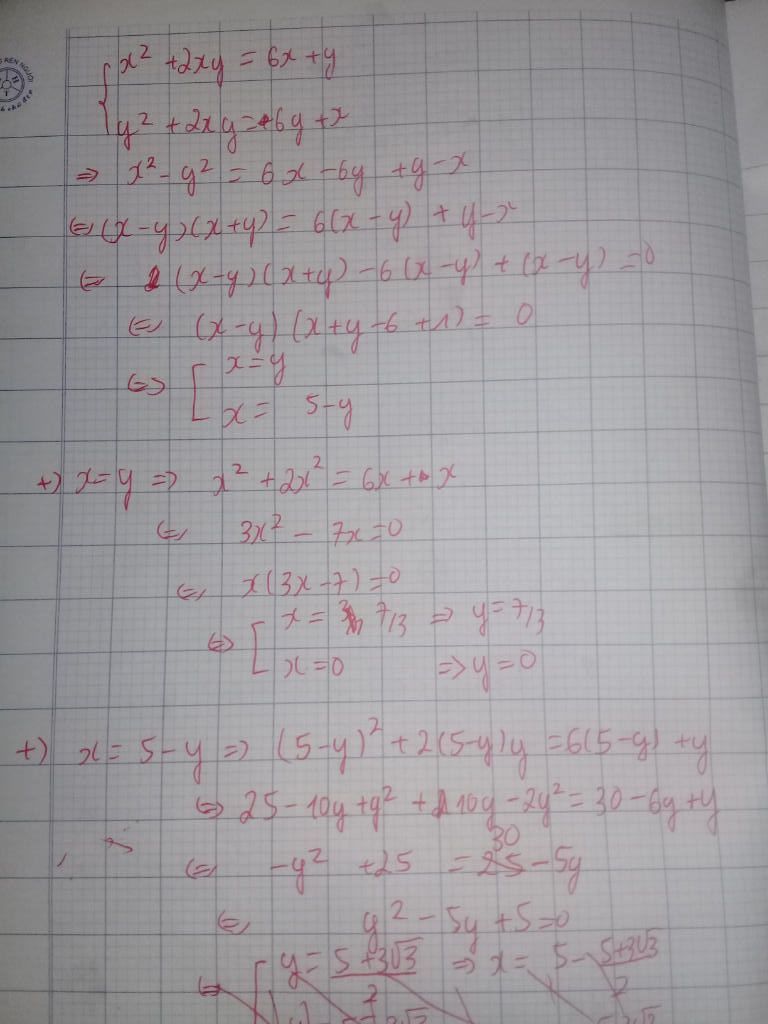 x² + 2xy = 6x + y
y² + 2xy = 6y + x
⇒ x² - y² = 6x - 6y + y - x
⇔ (x-y)(x+y) = 6(x-y) + y-x
⇔ (x-y)(x+y) - 6(x-y) + (x-y) = 0
⇔ (x-y)(x+y-6+1) = 0
⇔ [ x = y
x = 5-y
+) x = y ⇒ x² + 2x² = 6x + x
⇔ 3x² - 7x = 0
⇔ x(3x-7) = 0
⇔ [ x = 7/3 ⇒ y = 7/3
x = 0 ⇒ y = 0
+) x = 5-y ⇒ (5-y)² + 2(5-y)y = 6(5-y) + y
⇔ 25 - 10y + y² + 10y - 2y² = 30 - 6y + y
⇔ -y² + 25 = 30 - 5y
⇔ y² - 5y + 5 = 0
⇔ [ y = (5+3√3)/2 ⇒ x = 5 - (5+3√3)/2